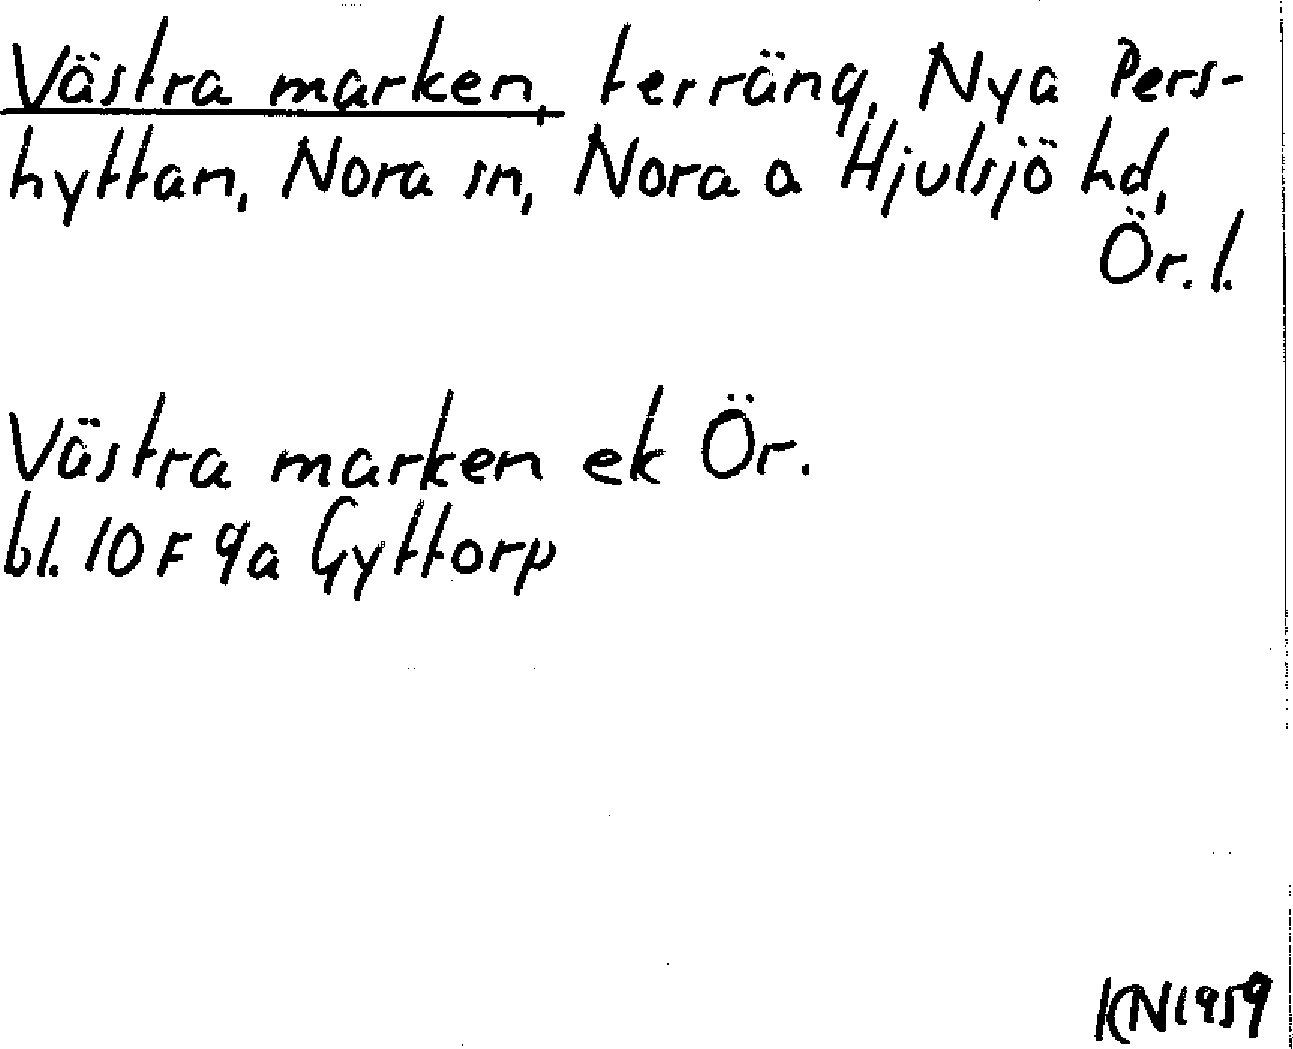 Västra marken, terräng, Nya Pers-
hyttan, Nora sn, Nora o Hjulsjö hd,
Ör. l.
Västra marken ek Ör.
bl. 10 F 9a Gyttorp
KN 1959